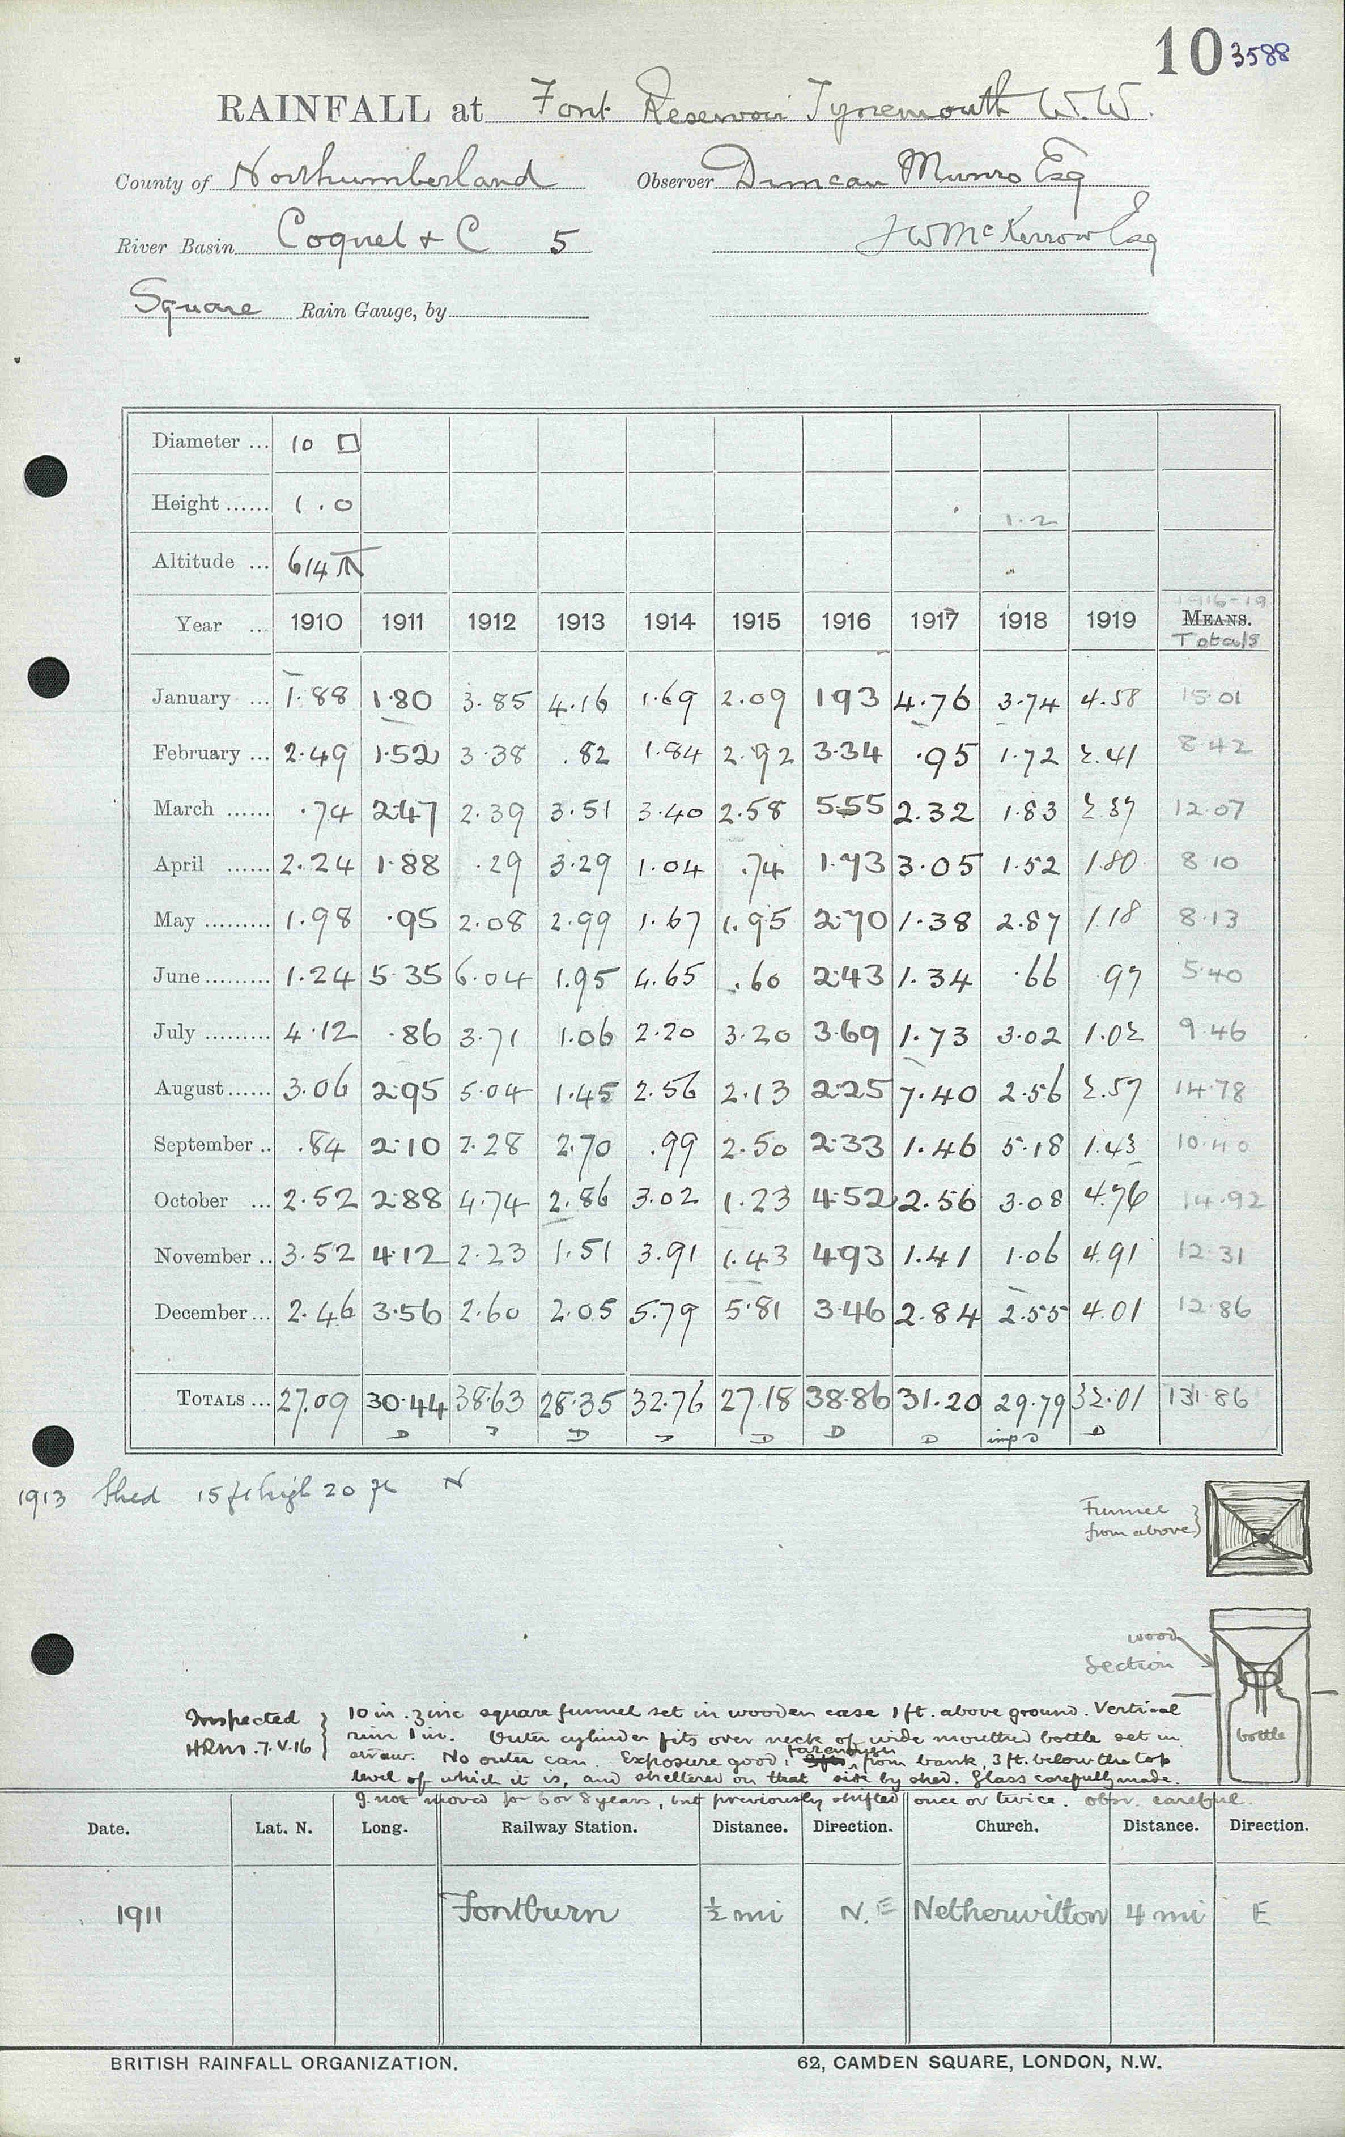 10 3588
RAINFALL at Font Reservoir Tynemouth W.W.
County of Northumberland Observer Duncan Munro Esq
River Basin Coquet & C 5 J W McKerrow Esq
Square Rain Gauge, by
Diameter ... 10 □
Height ...... 1.0 1.2
Altitude ... 614
1916-19
Year ... 1910 1911 1912 1913 1914 1915 1916 1917 1918 1919 MEANS.
Totals
January ... 1.88 1.80 3.85 4.16 1.69 2.09 193 4.76 3.74 4.58 15.01
February ... 2.49 1.52 3.38 .82 1.84 2.92 3.34 .95 1.72 2.41 8.42
March ...... .74 2.47 2.39 3.51 3.40 2.58 5.55 2.32 1.83 2.37 12.07
April ...... 2.24 1.88 .29 3.29 1.04 .74 1.73 3.05 1.52 1.80 8.10
May ......... 1.98 .95 2.08 2.99 1.67 1.95 2.70 1.38 2.87 1.18 8.13
June ......... 1.24 5.35 6.04 1.95 4.65 .60 2.43 1.34 .66 .97 5.40
July ......... 4.12 .86 3.71 1.06 2.20 3.20 3.69 1.73 3.02 1.02 9.46
August ...... 3.06 2.95 5.04 1.45 2.56 2.13 2.25 7.40 2.56 2.57 14.78
September .. .84 2.10 2.28 2.70 .99 2.50 2.33 1.46 5.18 1.43 10.40
October ... 2.52 2.88 4.74 2.86 3.02 1.23 4.52 2.56 3.08 4.76 14.92
November .. 3.52 4.12 2.23 1.51 3.91 1.43 4.93 1.41 1.06 4.91 12.31
December ... 2.46 3.56 2.60 2.05 5.79 5.81 3.46 2.84 2.55 4.01 12.86
TOTALS ... 27.09 30.44 38.63 28.35 32.76 27.18 38.86 31.20 29.79 32.01 131.86
D D D D D imp D D
1913 Shed 15 ft high 20 ft N
Funnel
from above
wood
Section
bottle
Inspected
HRM. 7.V.16
10 in. zinc square funnel set in wooden case 1 ft. above ground. Vertical
rim 1 in. Outer cylinder fits over neck of wide mouthed bottle set in
No outer can. Exposure good, from bank, 3 ft. below the top
level of which it is, and sheltered on that side by shed. Glass carefully made.
G. not moved for 6 or 8 years, but previously shifted once or twice. obsr. careful.
Date. Lat. N. Long. Railway Station. Distance. Direction. Church. Distance. Direction.
1911 Fontburn ½ mi N.E Netherwitton 4 mi E
BRITISH RAINFALL ORGANIZATION. 62, CAMDEN SQUARE, LONDON, N.W.